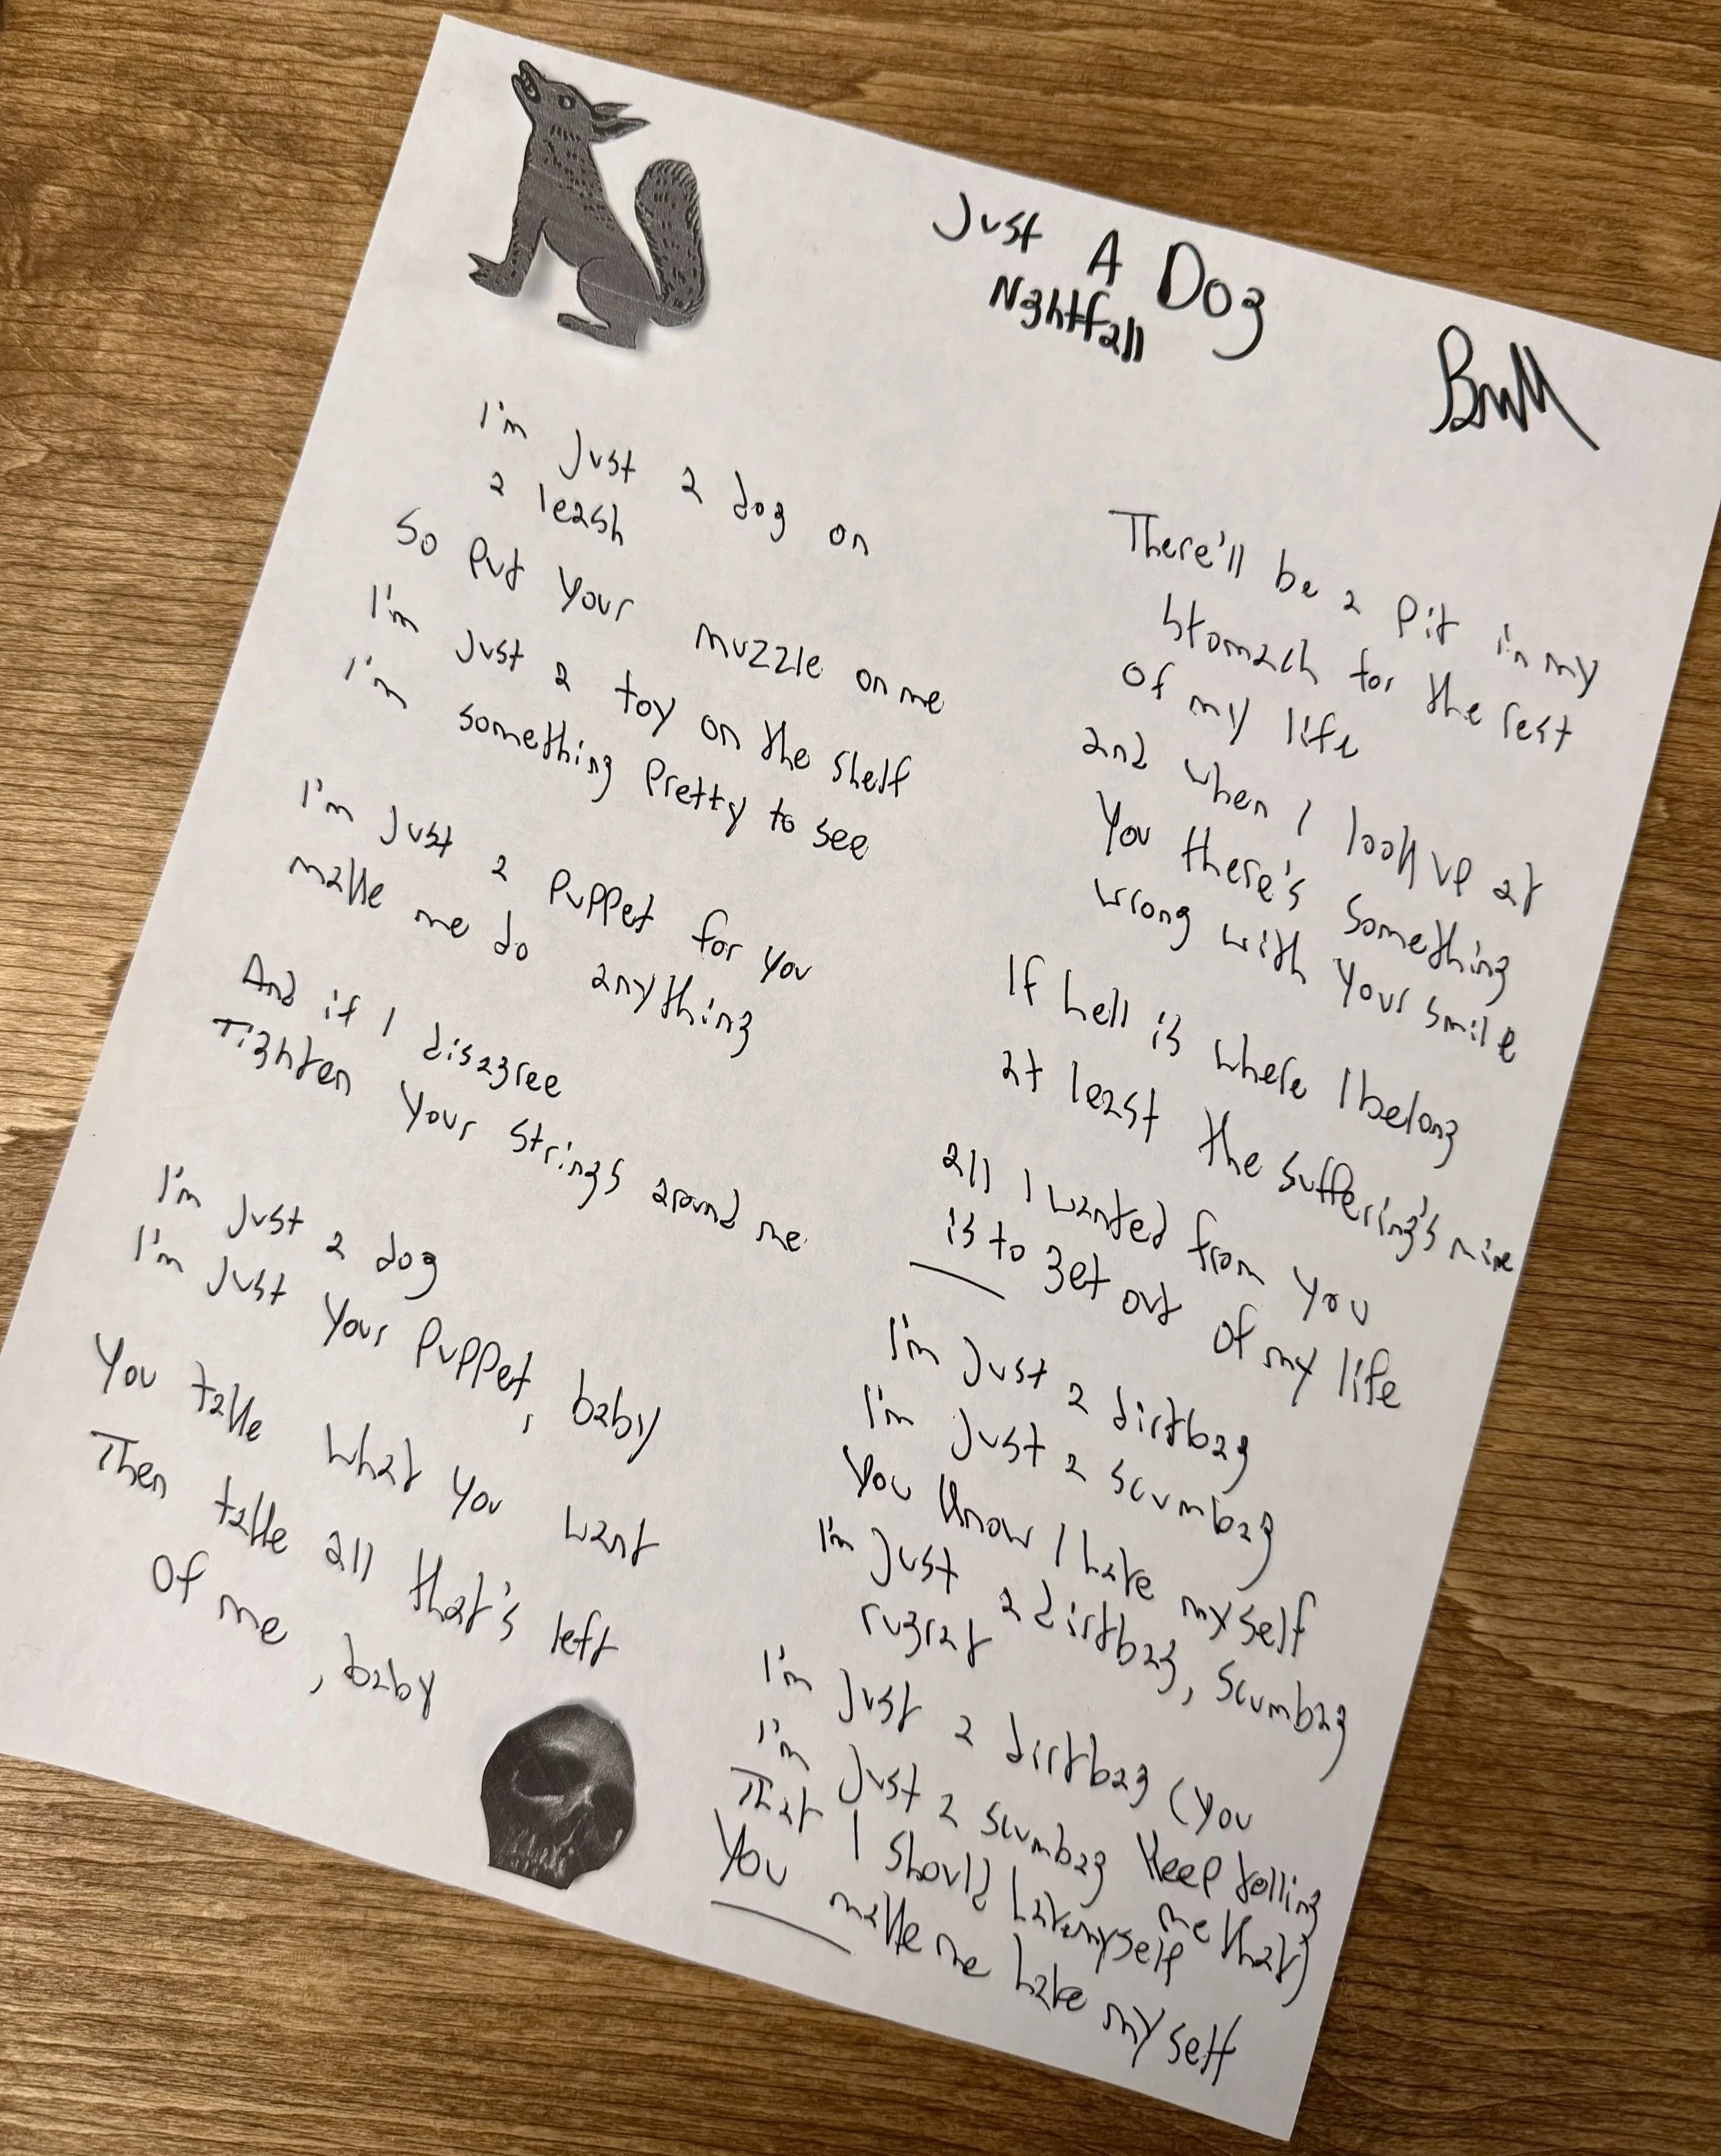 Just A Dog
Nghtfall
BmM
I'm just a dog on
a leash
So put your muzzle on me
I'm just a toy on the shelf
I'm something pretty to see
I'm just a puppet for you
make me do anything
And if I disagree
Tighten your strings around me
I'm just a dog
I'm just your puppet, baby
You take what you want
Then take all that's left
Of me, baby
There'll be a pit in my
stomach for the rest
of my life
and when I look up at
you there's something
wrong with your smile
If hell is where I belong
at least the suffering's mine
all I wanted from you
is to get out of my life
I'm just a dirtbag
I'm just a scumbag
You know I hate myself
I'm just a dirtbag, scumbag
rugrat
I'm just a dirtbag (you
I'm just a scumbag keep telling
me that)
That I should hate myself
You make me hate myself